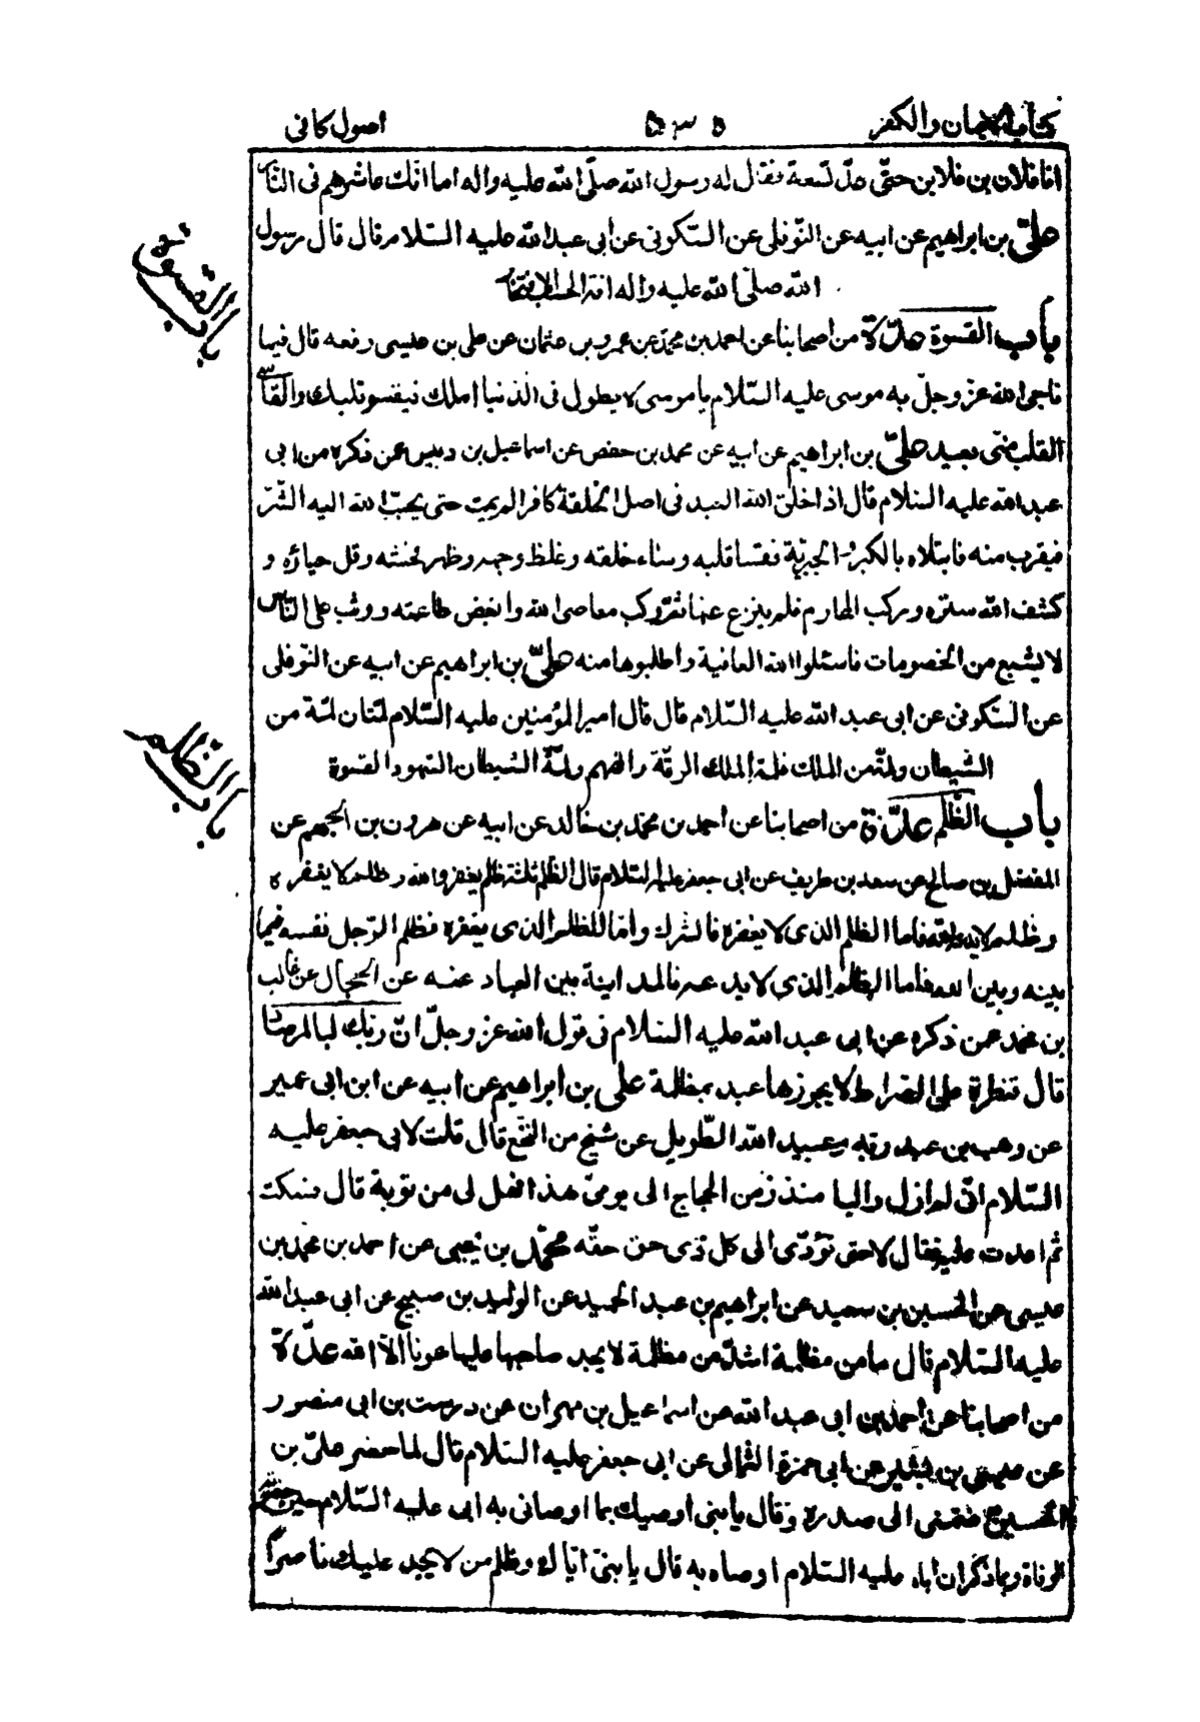 كتاب الايمان والكفر ٥٣٥ اصول كافى
انا فلان بن فلان حتّى عدّ تسعة فقال له رسول الله صلّى الله عليه واله اما انّك عاشرهم فى النّار
علىّ بن ابراهيم عن ابيه عن النّوفلى عن السّكونى عن ابى عبد الله عليه السّلام قال قال رسول
الله صلّى الله عليه واله افة الحسب الافتخار
باب القسوة
باب القسوة عدّة من اصحابنا عن احمد بن محمّد عن عمرو بن عثمان عن على بن عيسى رفعه قال فيما
ناجى الله عزّ وجلّ به موسى عليه السّلام يا موسى لا يطول فى الدّنيا املك فيقسو قلبك والقاسى
القلب منّى بعيد علىّ بن ابراهيم عن ابيه عن محمد بن حفص عن اسماعيل بن دبيس عمن ذكره من ابى
عبد الله عليه السّلام قال اذا خلق الله العبد فى اصل الخلقة كافرا لم يمت حتى يحبّب الله اليه الشّرّ
فيقرب منه فابتلاه بالكبر والجبريّة فقسا قلبه وساء خلقه وغلظ وجهه وظهر فحشه وقل حياؤه و
كشف الله ستره وركب المحارم فلم ينزع عنها ثمّ ركب معاصى الله وابغض طاعته ووثب على النّاس
لا يشبع من الخصومات فاسئلوا الله العافية واطلبوها منه علىّ بن ابراهيم عن ابيه عن النّوفلى
عن السّكونى عن ابى عبد الله عليه السّلام قال قال امير المؤمنين عليه السّلام لمّتان لمّة من
الشّيطان ولمّة من الملك فلمّة الملك الرقّة والفهم ولمّة الشّيطان السّهو والقسوة
باب الظّلم
باب الظّلم عدّة من اصحابنا عن احمد بن محمّد بن خالد عن ابيه عن هرون بن الجهم عن
المفضل بن صالح عن سعد بن طريف عن ابى جعفر عليه السّلام قال الظّلم ثلثة ظلم يغفره الله وظلم لا يغفره
وظلم لا يدعه الله فاما الظلم الذى لا يغفره فالشرك وامّا الظلم الذى يغفره فظلم الرّجل نفسه فيما
بينه وبين الله فاما الظلم الذى لا يدعه فالمداينة بين العباد عنه عن الحجال عن غالب
بن محمد عمن ذكره عن ابى عبد الله عليه السّلام فى قول الله عزّ وجلّ انّ ربّك لبالمرصاد
قال قنطرة على الصّراط لا يجوزها عبد بمظلمة على بن ابراهيم عن ابيه عن ابن ابى عمير
عن وهب بن عبد ربّه وعبيد الله الطّويل عن شيخ من النّخع قال قلت لابى جعفر عليه
السّلام انّى لم ازل واليا منذ زمن الحجاج الى يومى هذا فهل لى من توبة قال فسكت
ثم اعدت عليه فقال لا حتى تؤدّى الى كل ذى حق حقّه محمّد بن يحيى عن احمد بن محمد بن
عيسى عن الحسين بن سعيد عن ابراهيم بن عبد الحميد عن الوليد بن صبيح عن ابى عبد الله
عليه السّلام قال ما من مظلمة اشدّ من مظلمة لا يجد صاحبها عليها عونا الّا الله عدّة
من اصحابنا عن احمد بن ابى عبد الله عن اسماعيل بن مهران عن درست بن ابى منصور
عن عيسى بن بشير عن ابى حمزة الثّمالى عن ابى جعفر عليه السّلام قال لما حضر علىّ بن
الحسين ع ضمّنى الى صدره وقال يا بنى اوصيك بما اوصانى به ابى عليه السّلام حين حضرته
الوفاة وبما ذكر ان اباه عليه السّلام اوصاه به قال يا بنىّ ايّاك وظلم من لا يجد عليك ناصرًا